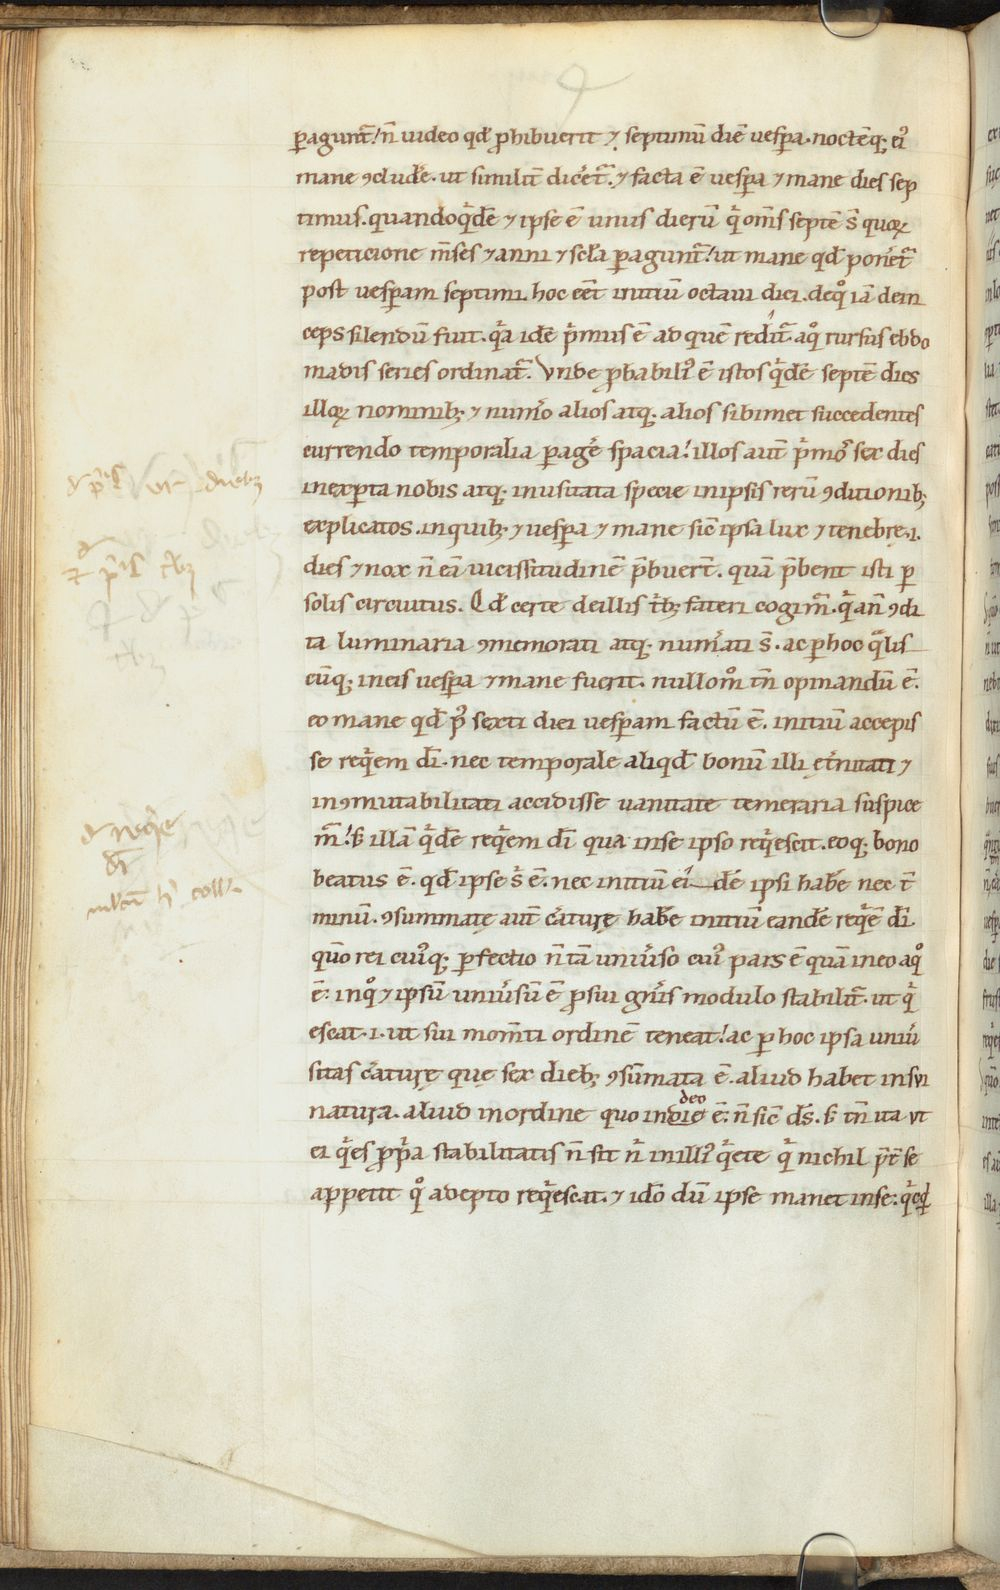 ꝑagunt᷑! n̄ uideo qđ ꝓhibuerit ⁊ septimū diē uesꝑa. noctēq; ei᷒
mane ꝯcludẻ. ut similit̄ dic̓et᷑. ⁊ facta ē uesꝑa ⁊ mane dies sep
timus. quandoqͥdē ⁊ ipse ē unus dierū qͥ om̄s septē s̄ quoꝝ
repeticione m̄ses ⁊ anni ⁊ scl̄a ꝑagunt᷑! ut mane qđ pon̓et᷑
post uesꝑam septimi. hoc eēt initiū octaui diei. deqͦ iā dein
ceps silendū fuit. qͥa idē pͥmus ē ad quē redit᷑. aqͦ rursus ebdo
madis series ordinat᷑. Vnde ꝓbabili᷒ ē istos qͥdē septē dies
illoꝝ nominibꝫ ⁊ num̓o alios atq; alios sibimet succedentes
currendo temporalia ꝑagẻ spacia! illos aut̄ pͥmo᷒ sex dies
inexꝑta nobis atq; inusitata specie inipsis rerū ꝯditionibꝫ
explicatos. inquibꝫ ⁊ uesꝑa ⁊ mane sic̄ ipsa lux ⁊ tenebrę. i.
dies ⁊ nox n̄ eā uicissitudinē p̄buer̄t. quā p̄bent isti ꝑ
solis circuitus. Qđ certe deillis tͥbꝫ fateri cogim᷒. qͥ an̄ ꝯdi
ta luminaria ꝯmemorati atq; num̓ati s̄. ac ꝑ hoc qͣlis
cūq; ineis uesꝑa ⁊ mane fuerit. nullomͦ tn̄ opinandū ē.
eo mane qđ p᷒ sexti diei uesꝑam factū ē. initiū accepis
se reqͥem dī. nec temporale aliqđ bonū illi ęt̓nitati ⁊
inꝯmutabilitati accidisse uanitate temeraria suspice
m᷒! ẜ illā qͥdē reqͥem dī qua inse ipso reqͥescit. eoq; bono
beatus ē. qđ ipse sͥ ē. nec initiū ei dē ipsi habẻ nec t̄
minū. ꝯsummatę aut̄ c̓aturę habẻ initiū eandē reqͥē dī.
qūo rei cui᷒q; ꝑfectio n̄ tā uniu̓so cui᷒ pars ē quā ineo aqͦ
ē: inqͦ ⁊ ipsū uniu̓sū ē ꝓsui gn̓is modulo stabilit᷑. ut qͥ
escat. i. ut sui mom̄ti ordinē teneat! ac ꝑ hoc ipsa uniu̓
sitas c̓aturę que sex diebꝫ ꝯsūmata ē. aliud habet insui
natura. aliud inordine quo indie ē: n̄ sic̄ dꝰ. ẜ tn̄ ita ut
deo
ei qͥes ꝓpͥa stabilitatis n̄ sit nͥ inilli᷒ qͥete qͥ nichil p̄t̓ se
appetit qͦ adepto reqͥescat. ⁊ ido᷒ dū ipse manet inse: qͥcqͥd